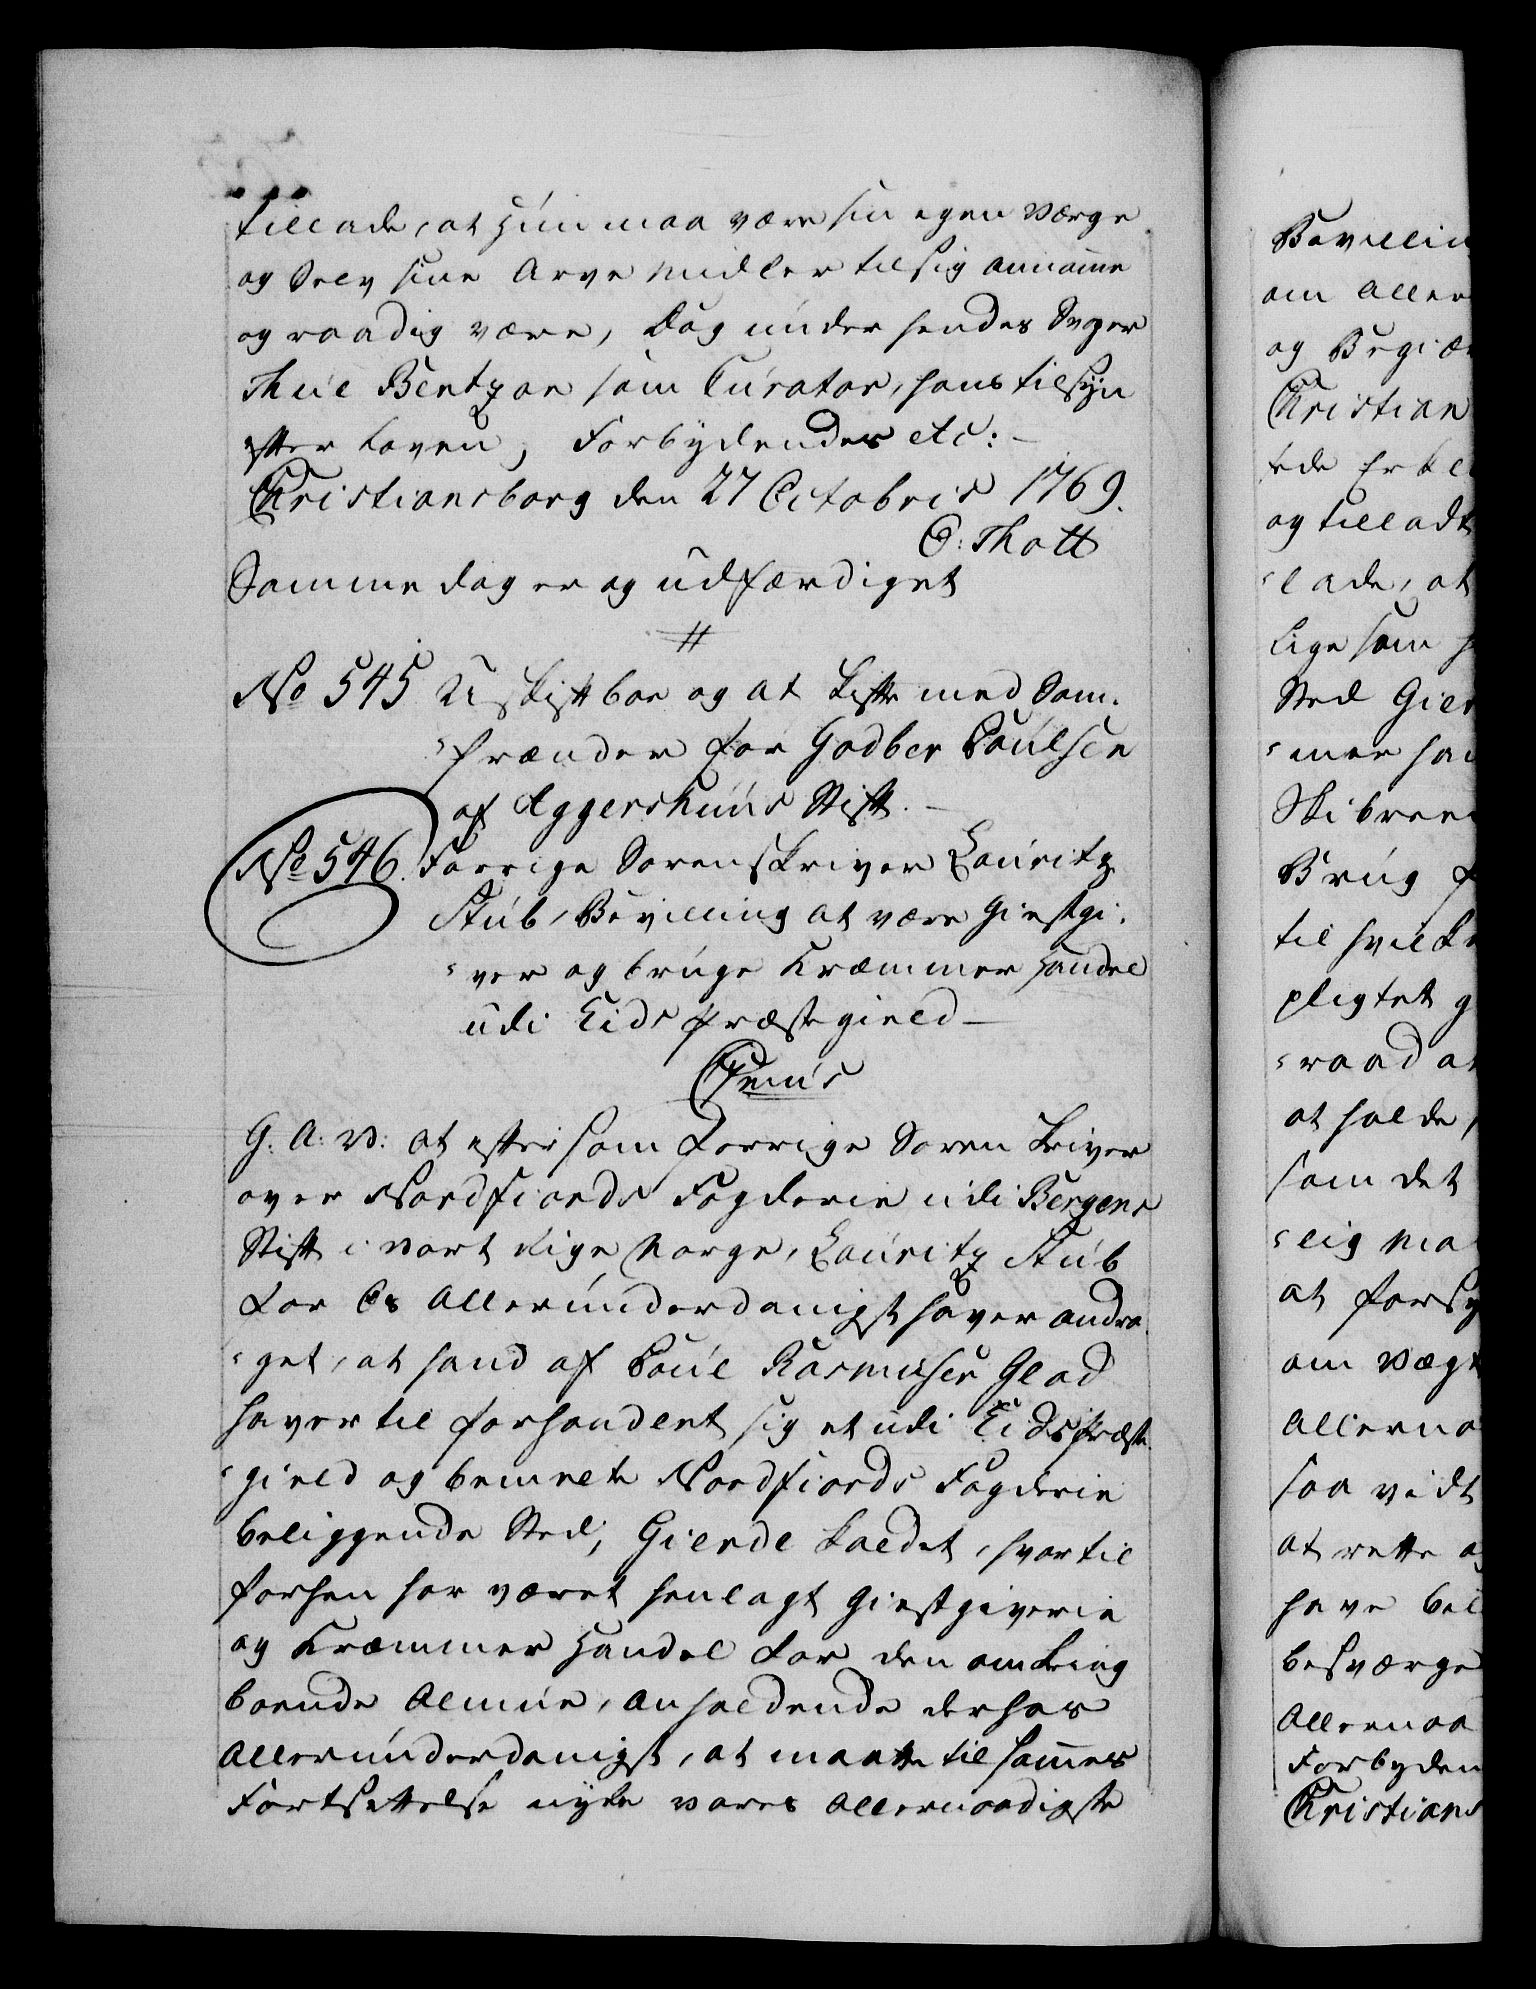 tillade, at Hun maa være sin egen Værge
og Selv sine Arve Midler til sig annamme
og raadig være, Dog under hendes Svoger
Thue Bentzon som Curator, hans tilsyn
efter Loven, Forbydendes etc:
Christiansborg den 27 Octobris 1769.
O: Thott
Samme dag er og udfærdiget
No 545 Uskiftboe og at skifte med Sam-
frænder for Godber Poulsen
af Aggershuus Stift.
No 546. Forrige Sorenskriver Lauritz
Stub, Bevilling at være Giestgi-
ver og bruge Kræmmer Handel
udi Eids Præstegield
Genus
G. A. V: at eftersom Forrige Sorenskriver
over Nordfiords Fogderie udi Bergens
Stift i Vort Rige Norge, Lauritz Stub
for Os Allerunderdanigst haver andra-
get, at hand af Poul Rasmusen Glad
haver til forhandlet sig et udi Eids Præste-
gield og bemelte Nordfiords Fogderie
beliggende Sted, Gierde kaldet, hvortil
forhen har været henlagt Giestgiverie
og Kræmmer Handel for den omkring
boende Almue, anholdende derhos
Allerunderdanigst, at maatte til sammes
Fortsættelse nyde vores Allernaadigste
Bevillin
om Aller
og Begiæ
Christian
og tilladt
lade, at
lige som
Sted Gier
Brug
til hvilke
pligtet g
raad a
at holde,
som det
lig Ma
at forsy
om Vægt
Allerna
saa vidt
at rette
have bel
besværge
Allernaa
Forbyden
Christians